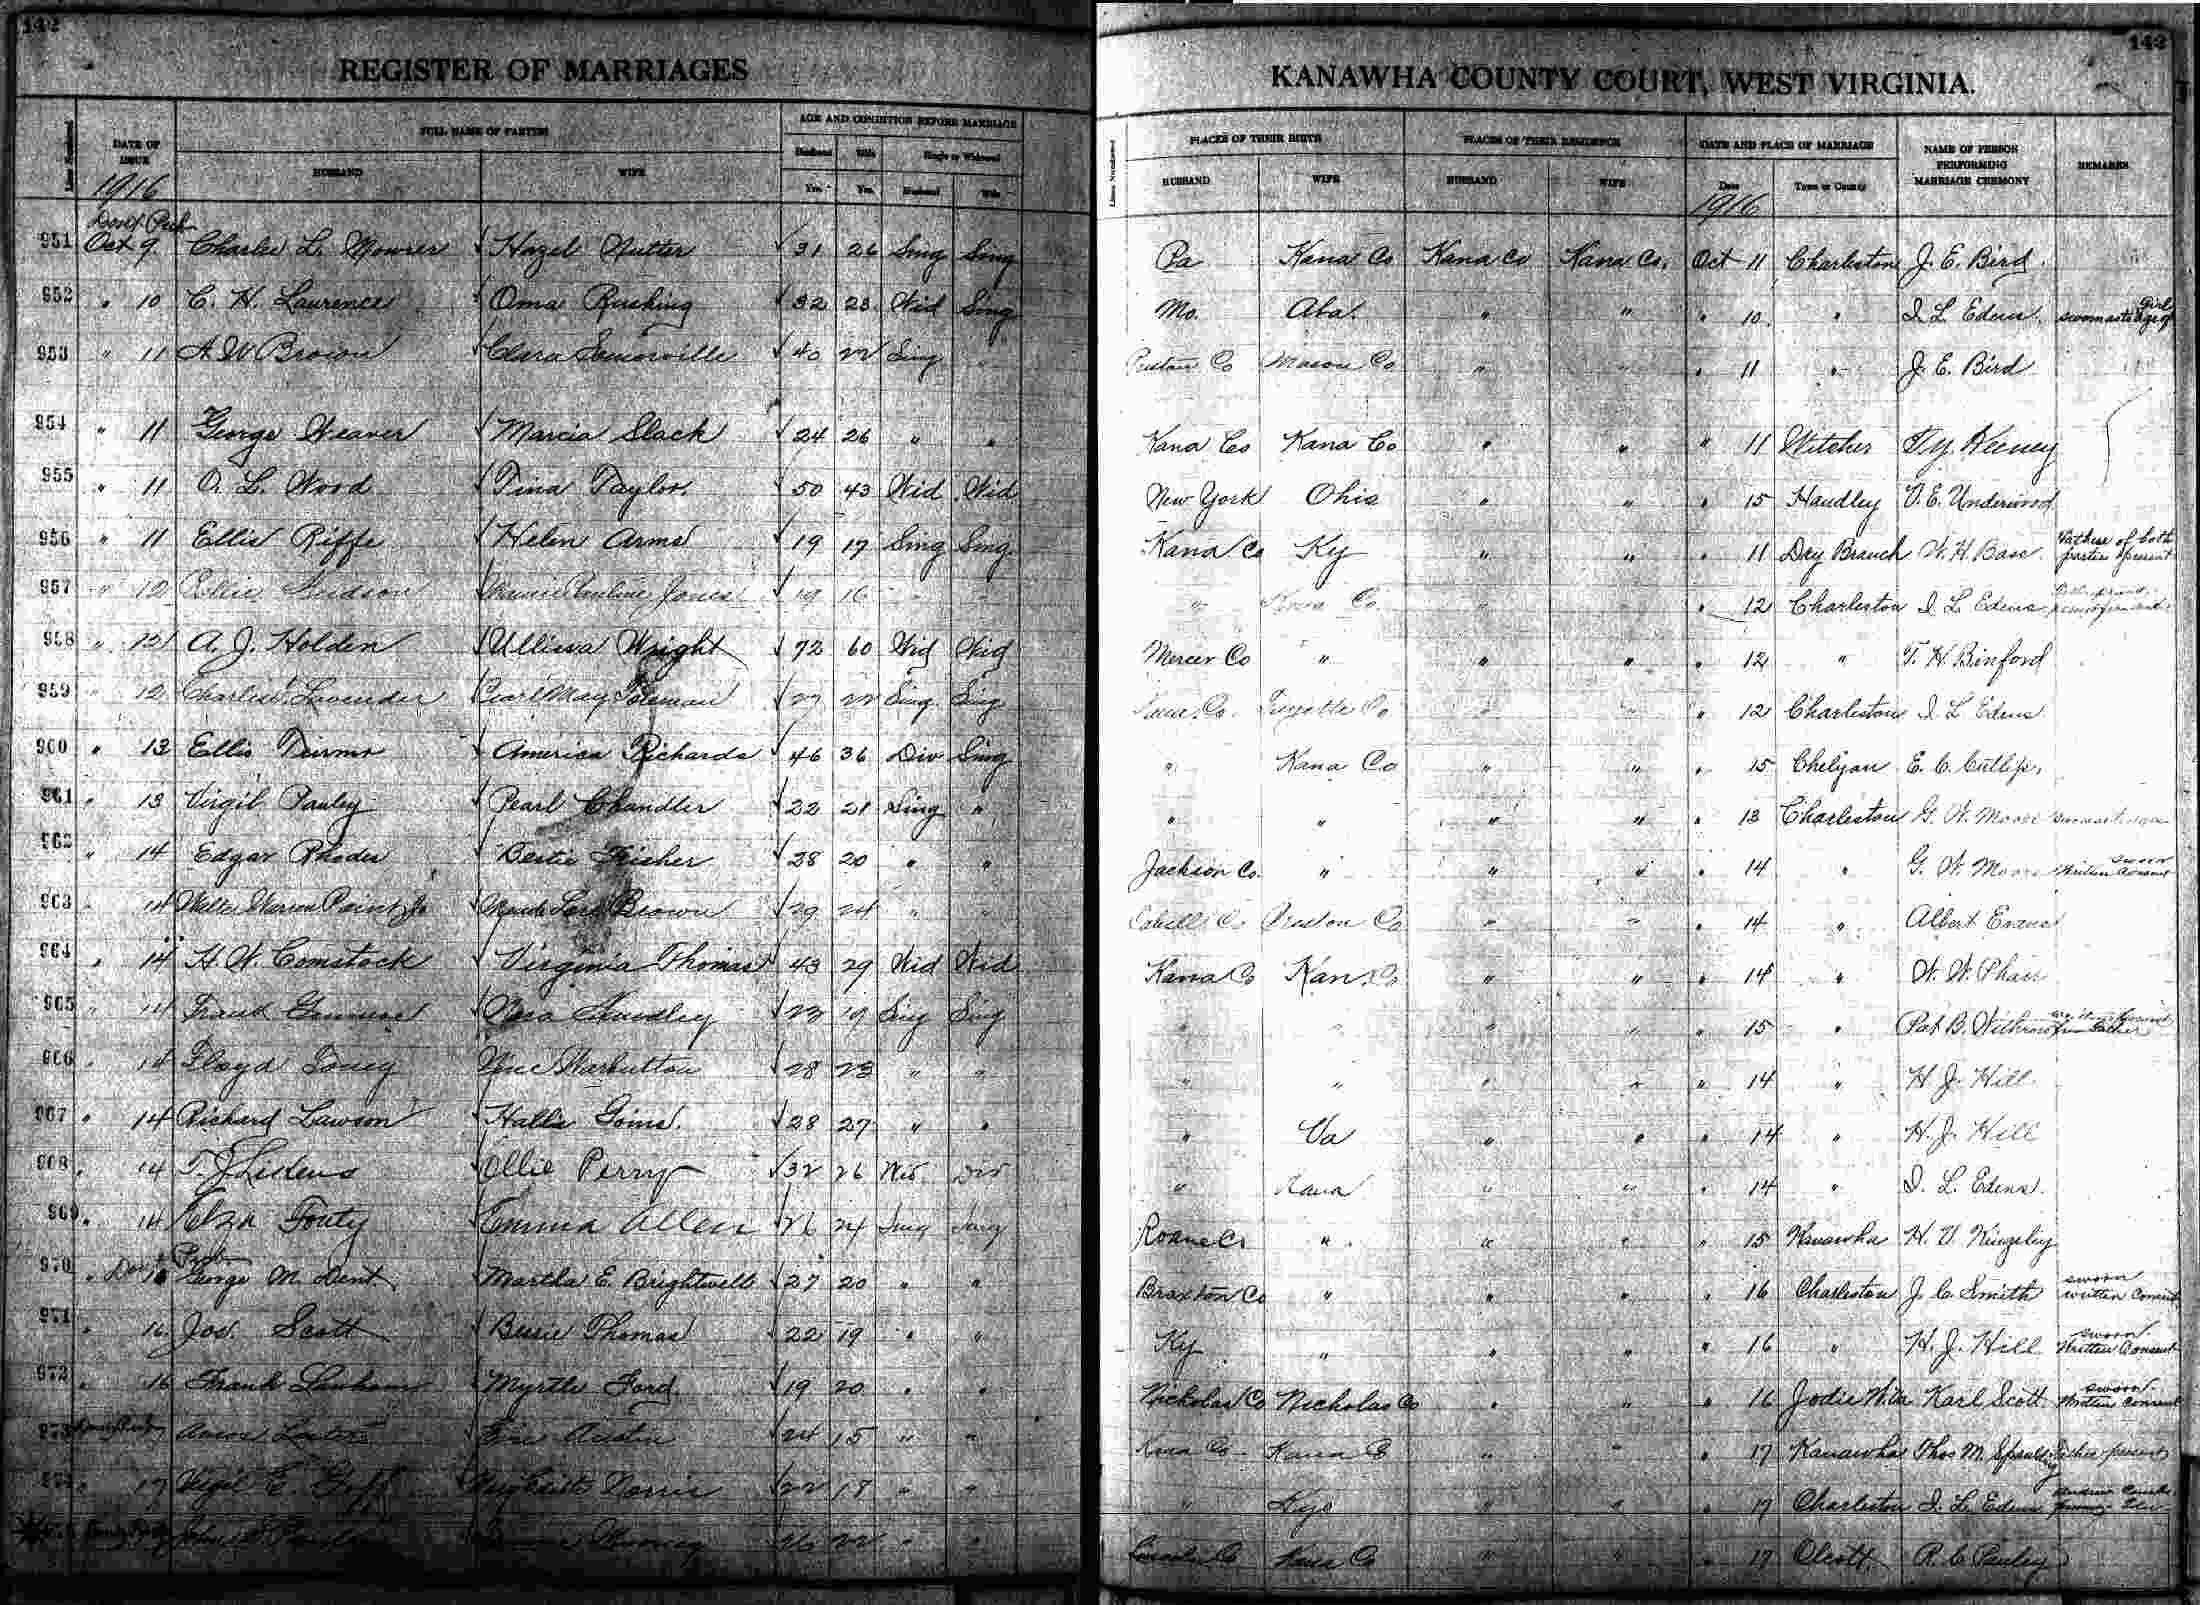 142
REGISTER OF MARRIAGES
DATE OF ISSUE
FULL NAME OF PARTIES
AGE AND CONDITION BEFORE MARRIAGE
HUSBAND
WIFE
Husband
Wife
Single or Widowed
Yrs.
Yrs.
Husband
Wife
1916
951 Oct 9. Charlie L. Mowrer Hazel Nutter 31 26 Sing Sing
952 " 10 C. H. Laurence Oma Rushing 32 23 Wid Sing
953 " 11 A W Brown Clara Somerville 40 22 Sing "
954 " 11 George Weaver Marcia Slack 24 26 " "
955 " 11 O. L. Wood Tina Taylor. 50 43 Wid Wid
956 " 11 Ellis Riffe Helen Arms 19 17 Sing Sing
957 " 12 Hudson Pauline Jones 19 16 " "
958 " 12 A. J. Holden Wright 72 60 Wid Wid
959 " 12 Charlie Lavender Pearl May Coleman 27 22 Sing. Sing
960 " 13 Ellis America Richards 46 36 Div Sing
961 " 13 Virgil Pauley Pearl Chandler 22 21 Sing "
962 " 14 Edgar Rhodes Bertie Fisher 28 20 " "
963 " 14 Warren Point Jr Brown 29 24 " "
964 " 14 H. W. Comstock Virginia Thomas 43 29 Wid Wid
965 " 14 Frank Handley 23 19 Sing Sing
966 " 14 Floyd Toney Warbutton 28 23 " "
967 " 14 Richard Lawson Hallie Goins. 28 27 " "
968 " 14 T. J. Ollie Perry 32 26 Wid. Div
969 " 14 Elza Fouty Emma Allen 26 24 Sing Sing
970 " 16 George M. Dent Martha E. Brightwell 27 20 " "
971 " 16 Jos. Scott Bessie Thomas 22 19 " "
972 " 16 Frank Lanham Myrtle Ford 19 20 " "
973 Austin 24 15 " "
17 Virgil E. Goff Norris 22 18 " "
John 26 22 " "
143
KANAWHA COUNTY COURT, WEST VIRGINIA.
PLACES OF THEIR BIRTH
PLACES OF THEIR RESIDENCE
DATE AND PLACE OF MARRIAGE
NAME OF PERSON PERFORMING MARRIAGE CEREMONY
REMARKS
License Numbered
HUSBAND
WIFE
HUSBAND
WIFE
Date
Town or County
1916
Pa Kana Co Kana Co Kana Co. Oct 11 Charleston J. E. Bird.
Mo. Aba. " " " 10. " I. L. Edens. Girl sworn as to age of
Preston Co Mason Co " " " 11 " J. E. Bird
Kana Co Kana Co " " " 11 Witcher Keeney
New York Ohio " " " 15 Handley V. E. Underwood
Kana Co Ky " " " 11 Dry Branch W. H. Bass. Fathers of both parties present
" Kana Co " " " 12 Charleston I. L. Edens
Mercer Co " " " " 12 " T. H. Binford
Kana. Co. Fayette Co " " " 12 Charleston I. L. Edens
" Kana Co " " " 15 Chelyan E. C. Cutlip.
" " " " " 13 Charleston G. W. Moore sworn as to age
Jackson Co. " " " " 14 " G. W. Moore sworn Written Consent
Cabell Co Preston Co " " " 14 " Albert Evans
Kana Co Kan. Co " " " 14 " W. W. Phair
" " " " " 15 " Pat B. Withrow written consent from father
" " " " " 14 " H J. Hill
" Va " " " 14 " H. J. Hill
" Kana " " " 14 " I. L. Edens.
Roane Co " " " " 15 Kanawha H. V. Kingsley
Braxton Co " " " " 16 Charleston J. C. Smith sworn written consent
Ky " " " " 16 " H. J. Hill sworn Written Consent
Nicholas Co Nicholas Co " " " 16 Jodie W.Va Karl Scott sworn Written Consent
Kana Co Kana C " " " 17 Kanawha Thos M. Spaulding Father present
" Kys " " " 17 Charleston I. L. Edens
Lincoln Co Kana Co " " " 17 Olcott R. C Pauley